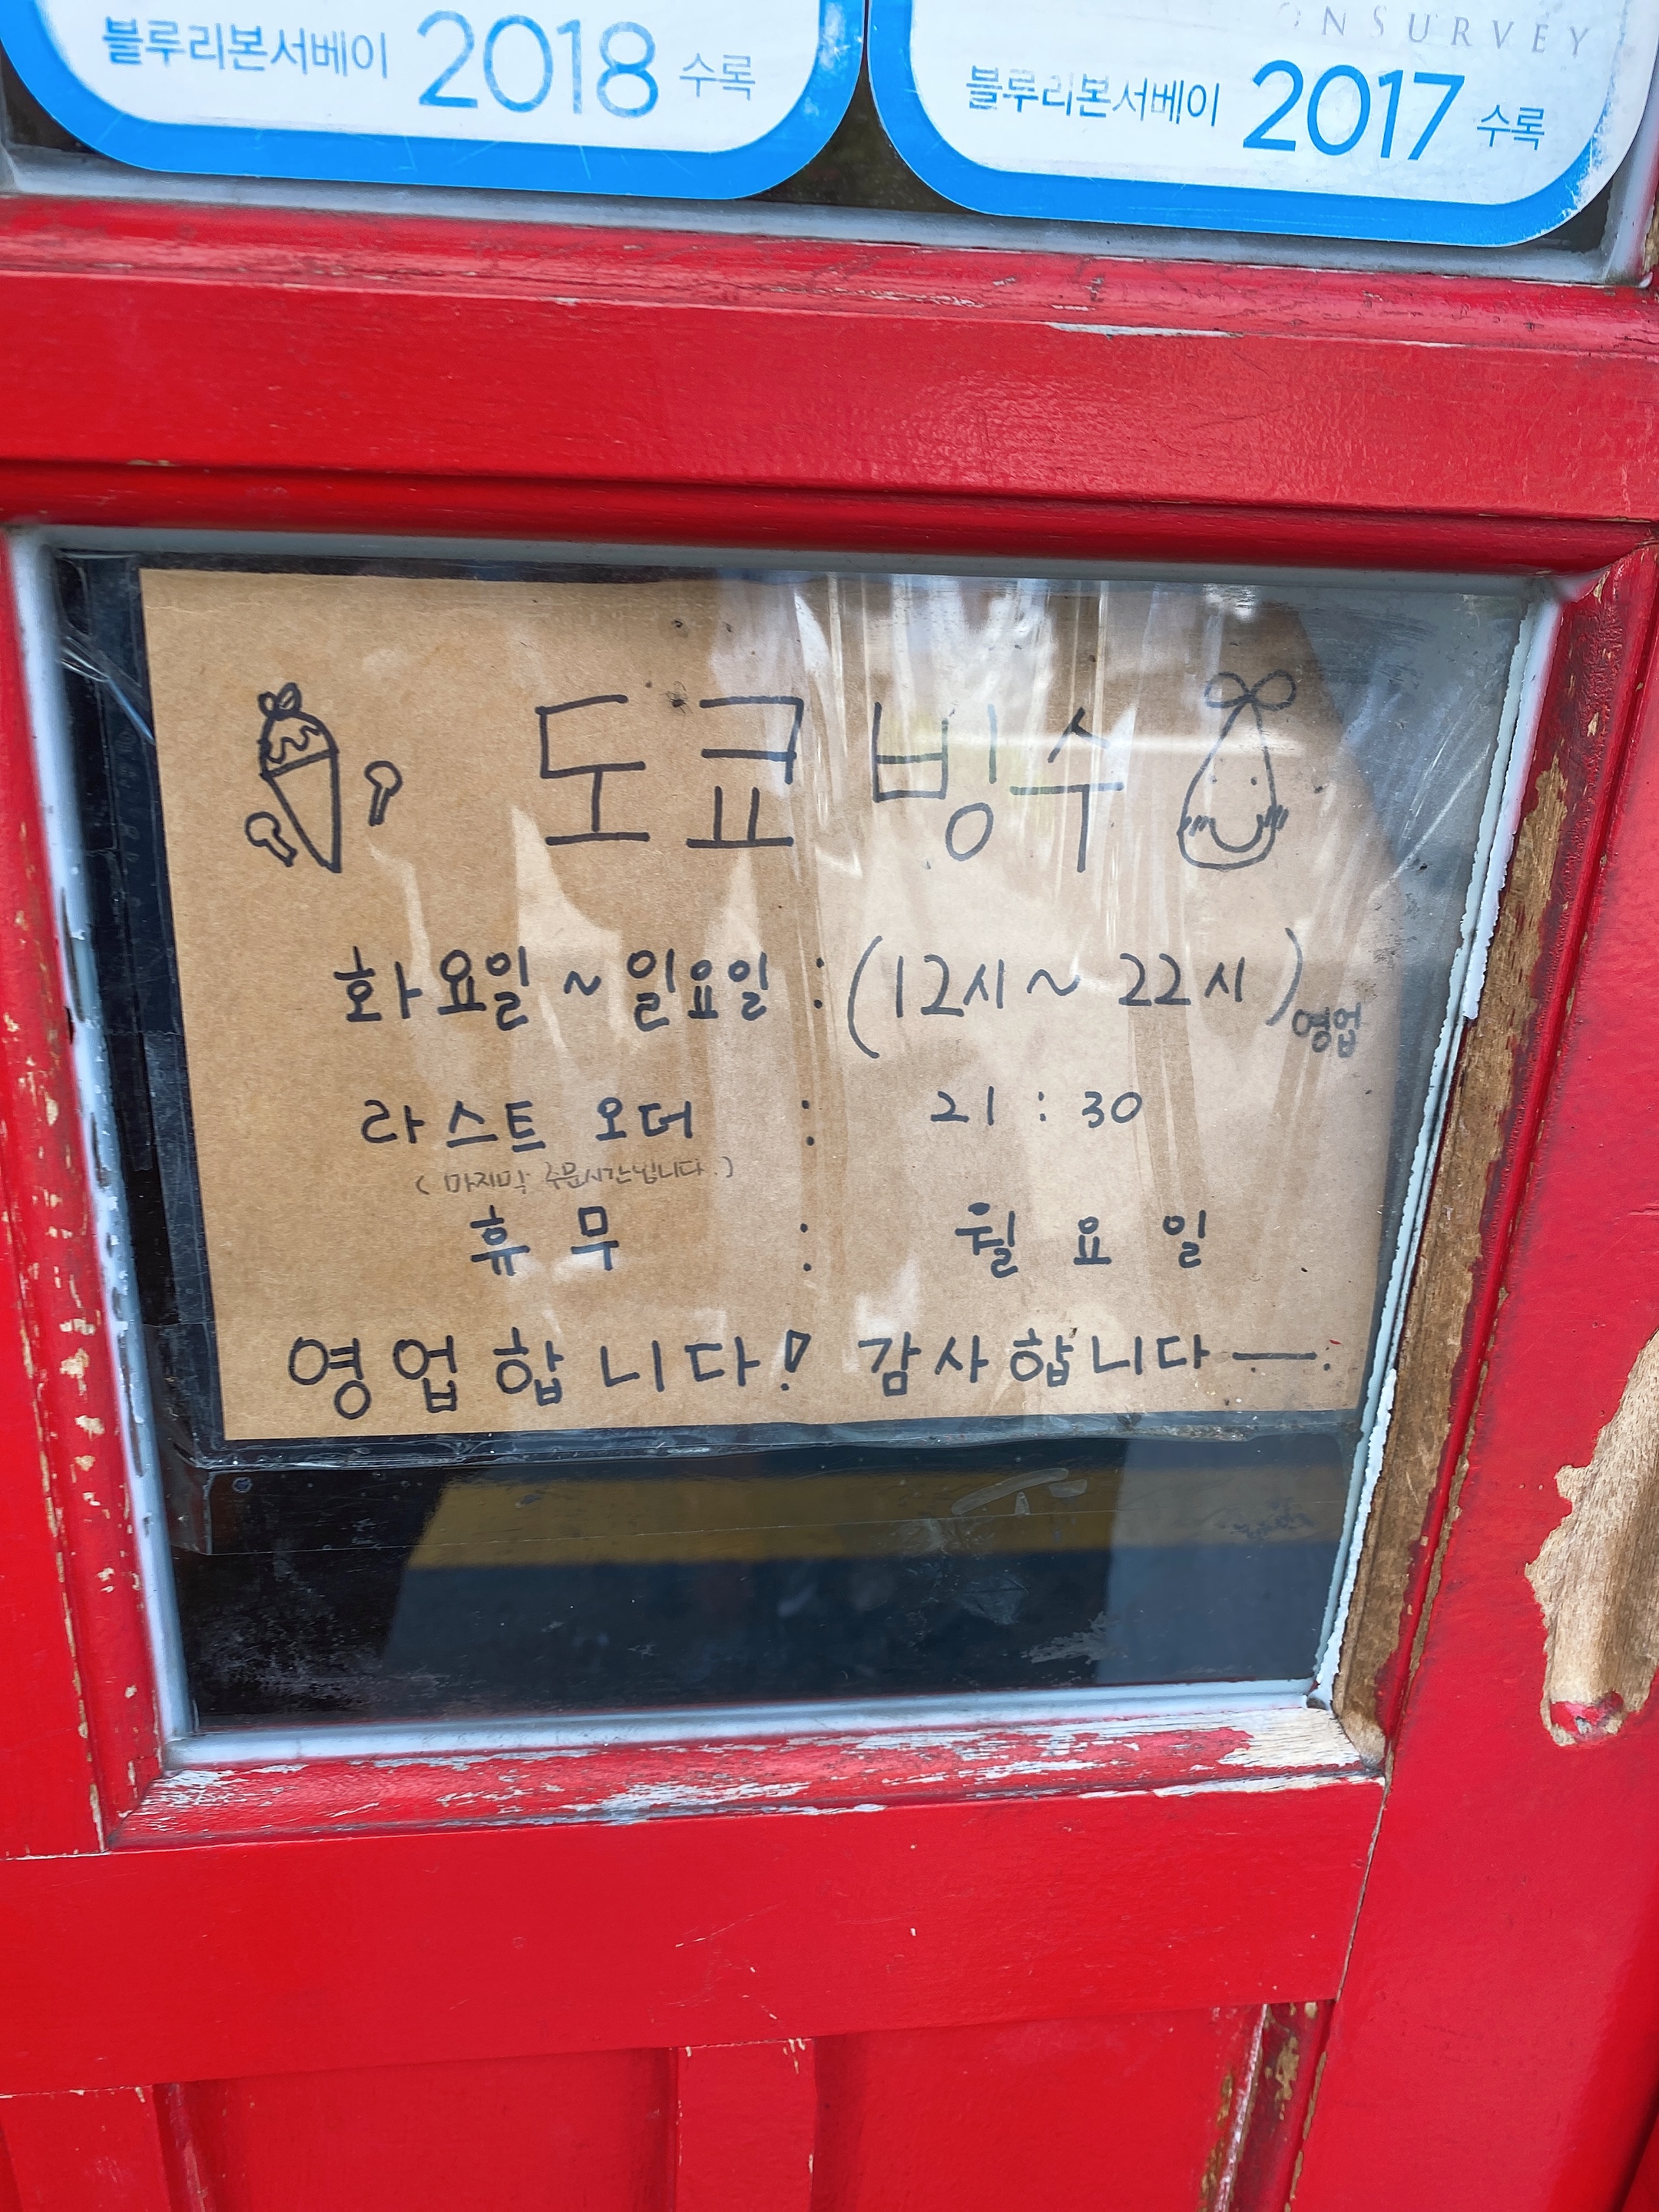 블루리본서베이 2018 수록
ONSURVEY
블루리본서베이 2017 수록
도쿄빙수
화요일 ~ 일요일 : (12시 ~ 22시) 영업
라스트 오더 : 21 : 30
( 마지막 주문시간입니다. )
휴무 : 월요일
영업합니다! 감사합니다—.